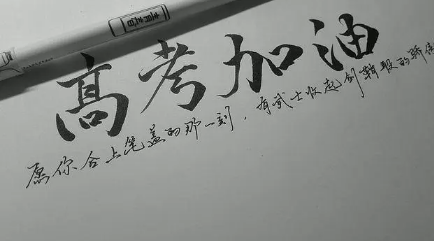 高考加油
愿你合上笔盖的那一刻,有武士收起剑鞘般的骄傲